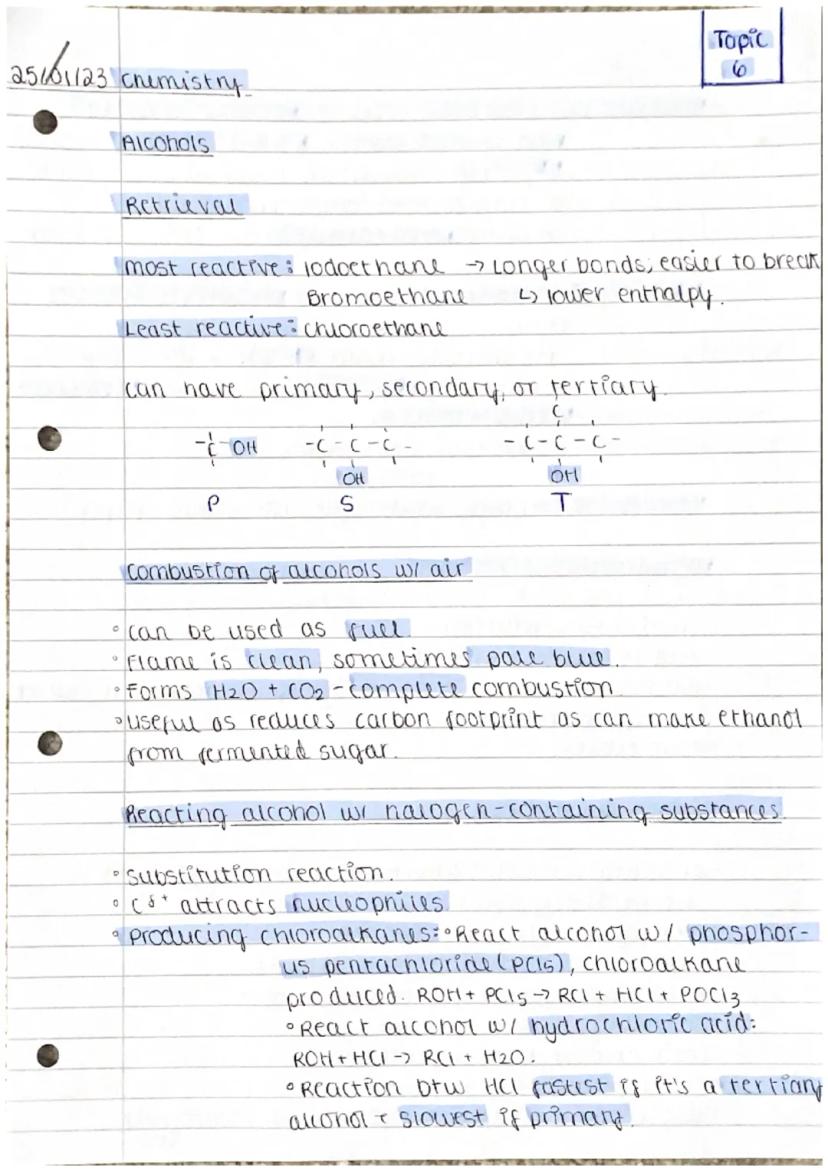 Topic
6
25/01/23 Chemistry
Alcohols
Retrieval
most reactive: Iodoethane → Longer bonds; easier to break
Bromoethane ↳ lower enthalpy.
Least reactive: Chloroethane
can have primary, secondary, or tertiary.
C
-C-OH -C-C-C- -C-C-C-
OH OH
P S T
Combustion of alcohols w/ air
° can be used as fuel.
° Flame is clean, sometimes pale blue.
° Forms H2O + CO2 - complete combustion
° useful as reduces carbon footprint as can make ethanol
from fermented sugar.
Reacting alcohol w/ halogen-containing substances
° Substitution reaction.
° Cδ+ attracts nucleophiles
° Producing chloroalkanes: ° React alcohol w/ phosphor-
us pentachloride (PCl5), chloroalkane
produced. ROH + PCl5 → RCl + HCl + POCl3
° React alcohol w/ hydrochloric acid:
ROH + HCl → RCl + H2O.
° Reaction btw HCl fastest if it's a tertiary
alcohol + slowest if primary.